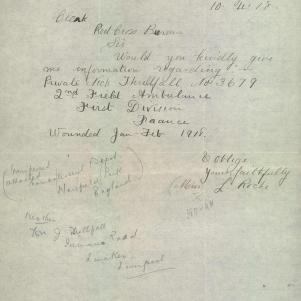 10. 4. 18.
Clerk
Red Cross Bureau
Sir
Would you kindly give
me information regarding :-
Private Threlfall No 3679
2nd Field Ambulance
First Division
France
Wounded Jan-Feb 1918.
& Oblige
Yours faithfully
(Miss) L Roche
Depot
attached
Hurdcott
England
Mother
J Threlfall
Road
Liverpool